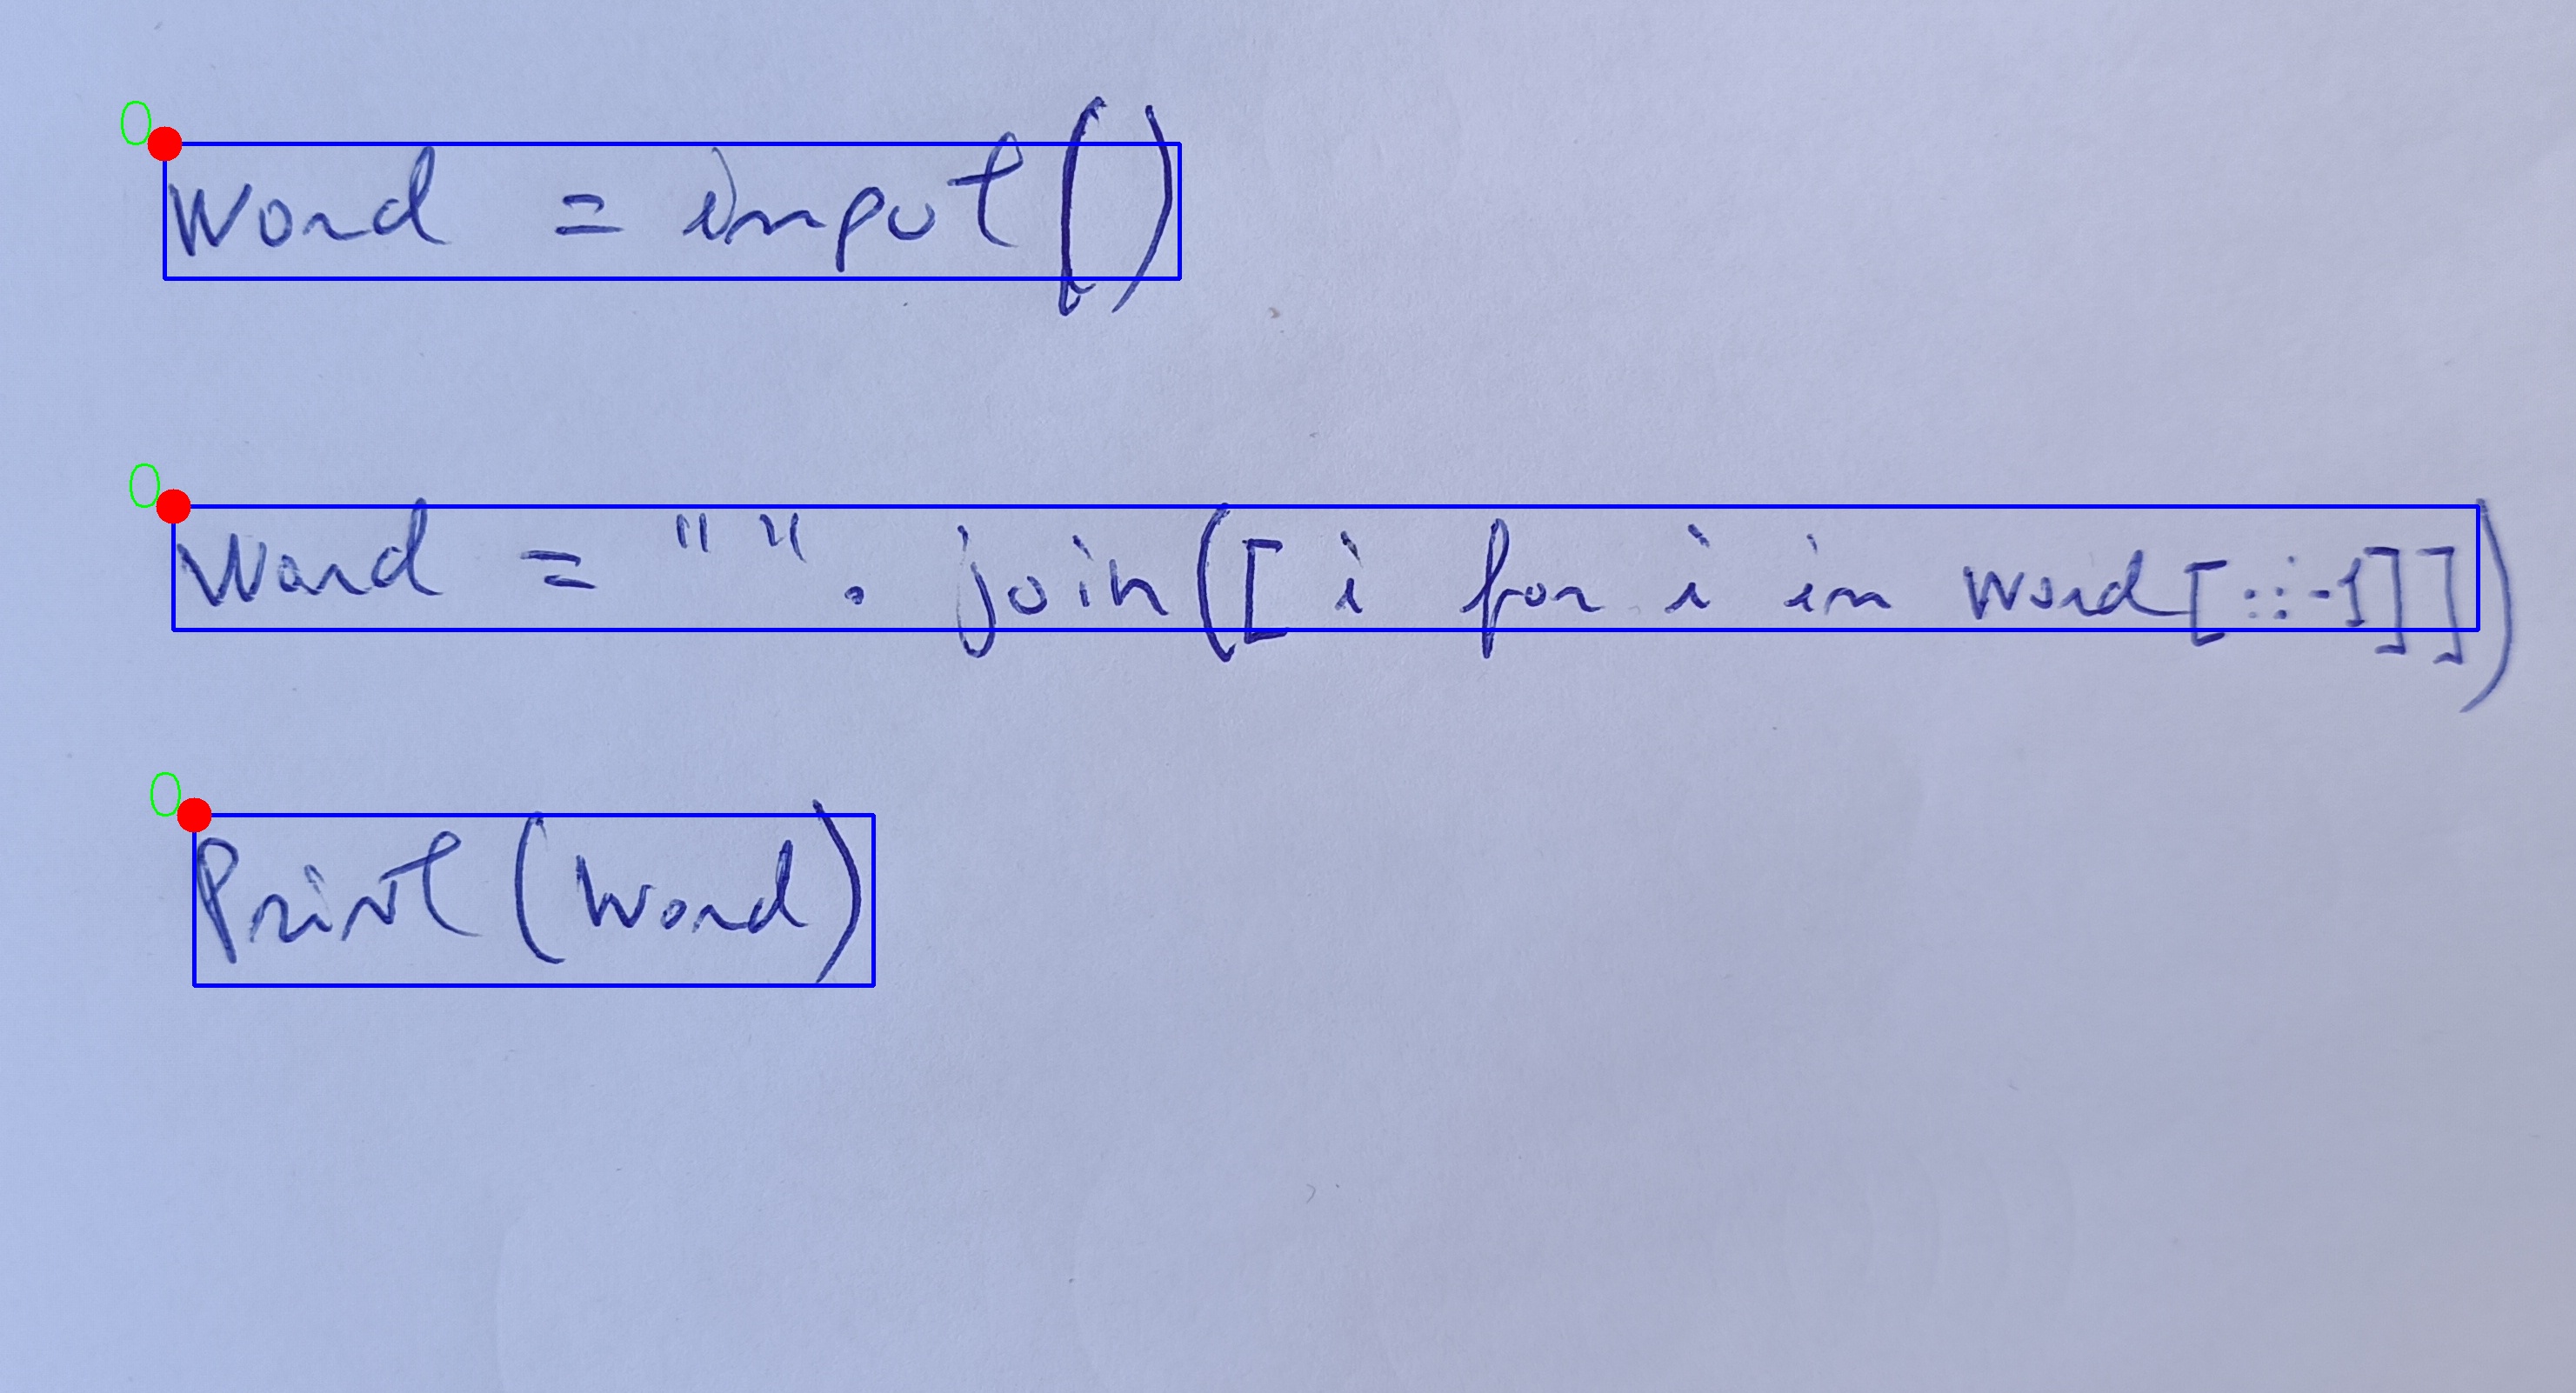 Word = input()
Word = " ". join([ i for i in word[::-1]])
Print (word)